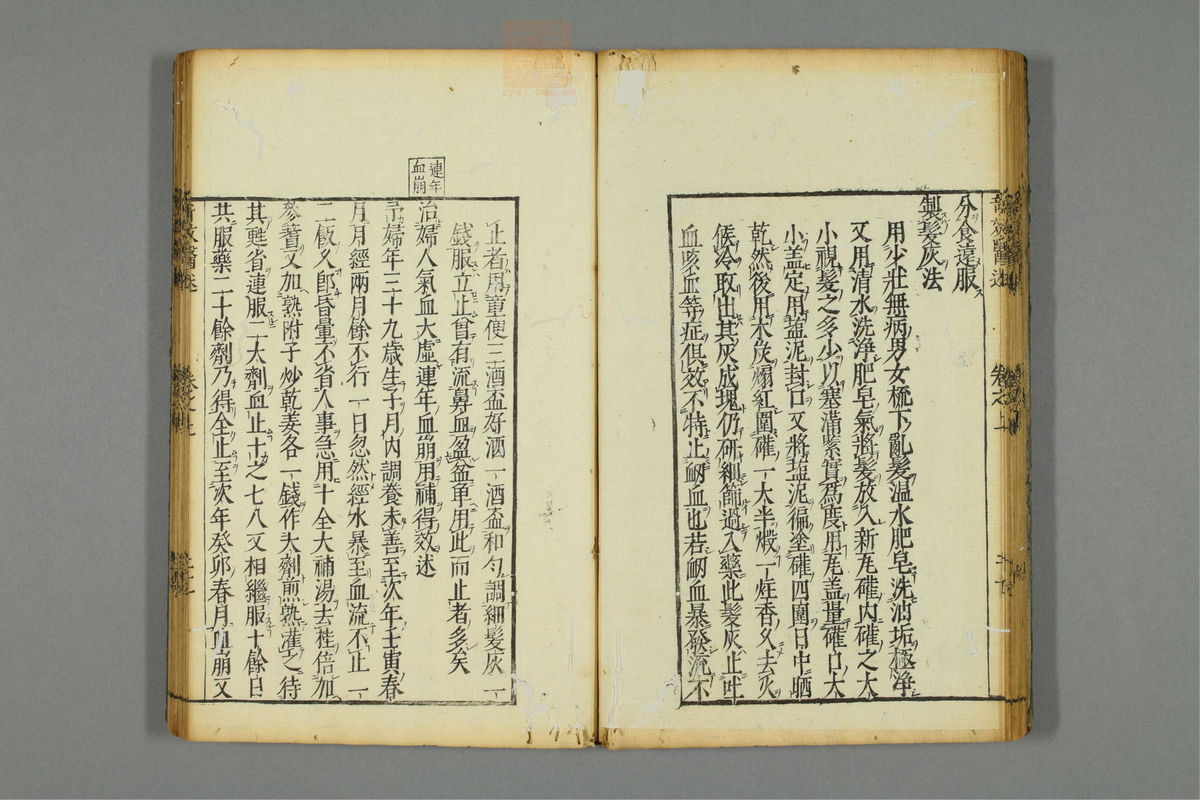 分食遠服
製髮灰法
用少壯無病男女梳下亂髮温水肥皂洗油垢極淨
又用清水洗淨肥皂氣將髮放入新瓦礶内礶之大
小視髮之多少以塞滿緊實為度用瓦盖量礶口大
小盖定用塩泥封口又將塩泥徧塗礶四圍日中晒
乾然後用木炭煽紅圍礶一大半煅一炷香久去火
候冷取出其灰成塊仍研細篩過入藥此髮灰止吐
血咳血等症俱效不特止衂血也若衂血暴發流不
止者用童便三酒盃好酒一酒盃和勺調細髮灰一
錢服立止曾有流鼻血盈盆單用此而止者多矣
連年
血崩
治婦人氣血大虛連年血崩用補得效述
予婦年三十九歲生子月内調養未善至次年壬寅春
月月經兩月餘不行一日忽然經水暴至血流不止一
二飯久卽昏暈不省人事急用十全大補湯去桂倍加
參蓍又加熟附子炒乾姜各一錢作大劑煎熟灌之待
其甦省連服二大劑血止十之七八又相繼服十餘日
共服藥二十餘劑乃得全止至次年癸卯春月血崩又